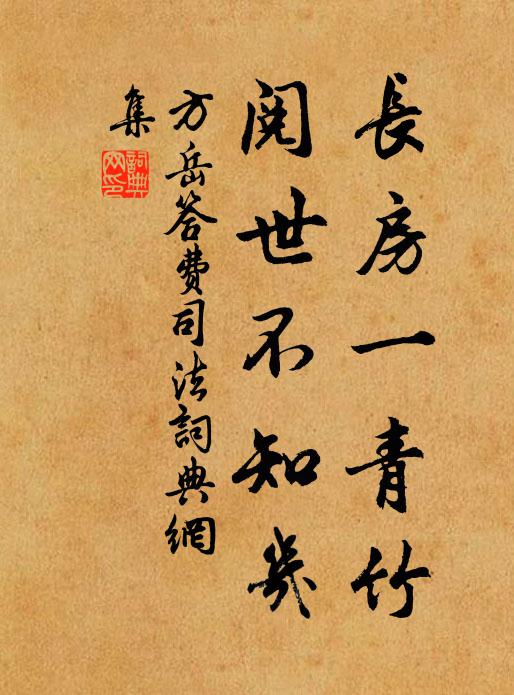 長房一青竹
閱世不知幾
方岳答費司法詞典網
集
詞典網印